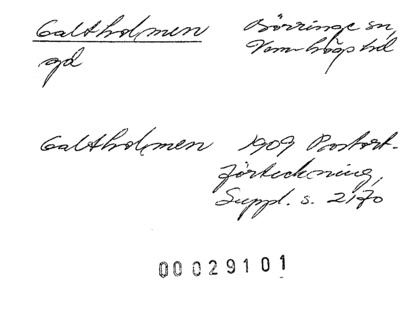 Galtholmen Börringe sn,
gd Vemmenhögs hd
Galtholmen 1909 Postort-
förteckning,
Suppl. s. 2170
00029101